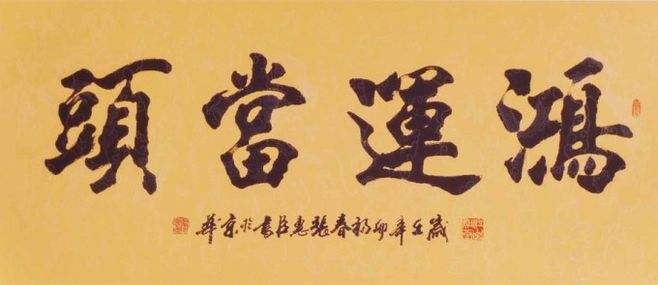 鴻運當頭
歲在辛卯初春張惠臣書於京華